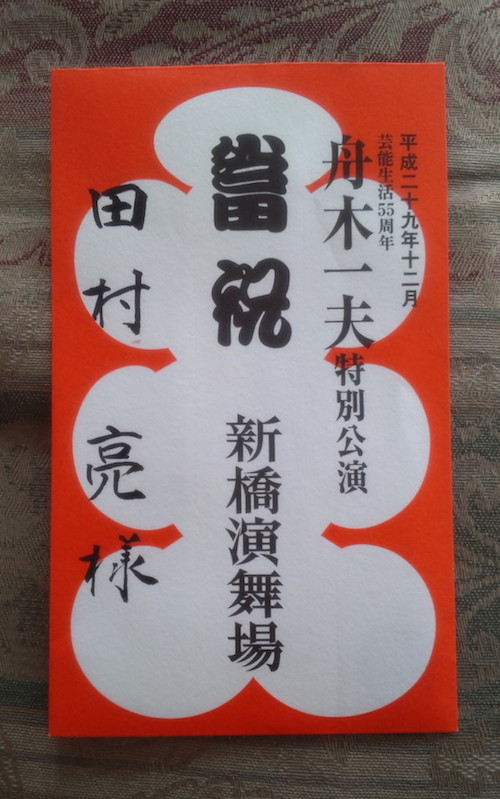 平成二十九年十二月
芸能生活55周年
舟木一夫特別公演
當祝
新橋演舞場
田村 亮様